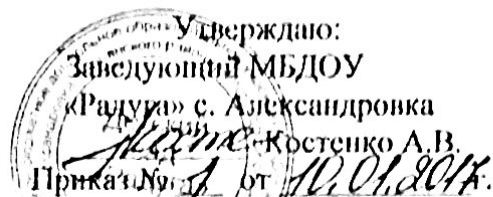 Утверждаю:
Заведующий МБДОУ
«Радуга» с. Александровка
Костенко А.В.
Приказ № 1 от 10.01.2017г.